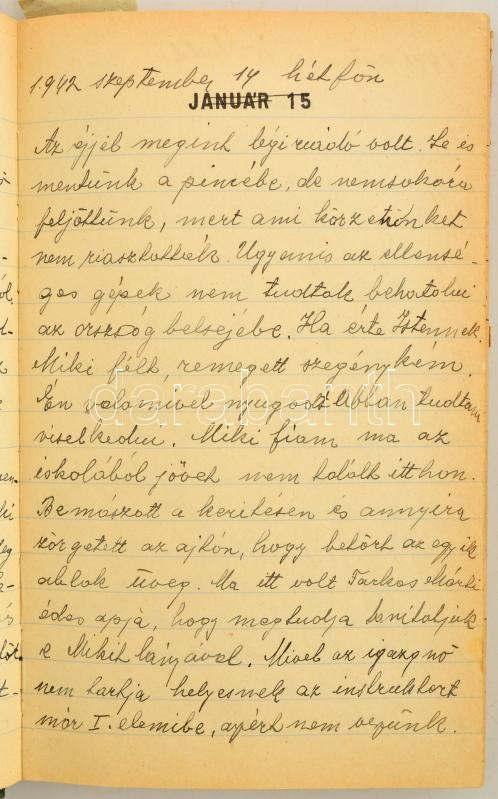 1942 szeptember 14 hétfőn
JANUÁR 15
Az éjjel megint légiriadó volt. Le is
mentünk a pincébe, de nemsokára
feljöttünk, mert ami körzetünket
nem riasztották. Ugyanis az ellensé-
ges gépek nem tudtak behatolni
az ország belsejébe. Hála érte Istennek.
Miki félt, remegett szegénykém.
Én valamivel nyugodtabban tudtam
viselkedni. Miki fiam ma az
iskolából jövet nem talált itthon.
Bemászott a kerítésen és annyira
zörgetett az ajtón, hogy betört az egyik
ablak üveg. Ma itt volt Farkas Márti
édes apja, hogy megtudja tanítatjuk
e Mikit lányával. Mivel az igazgnő
nem tartja helyesnek az instruktort
már I. elemibe, azért nem vezünk.
darabanth